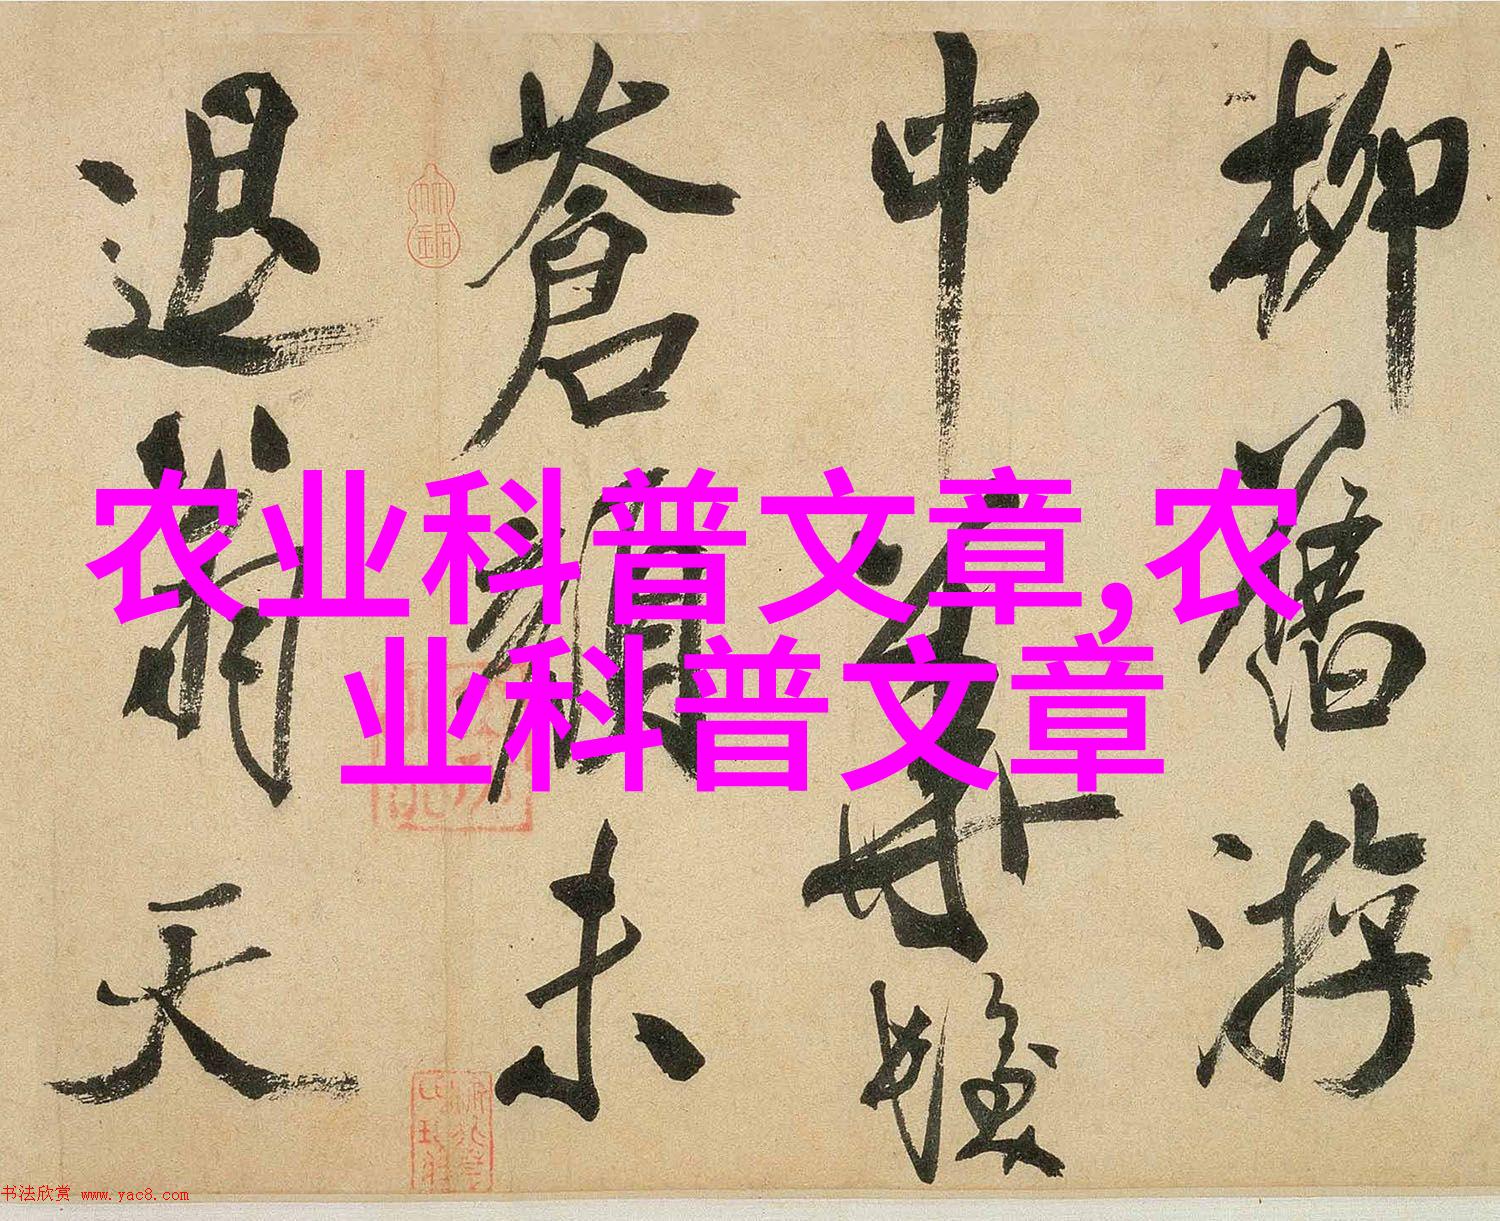 柳舊游
中
蒼顏未
退翁天
农业科普文章,农
业科普文章
书法欣赏 www.yac8.com